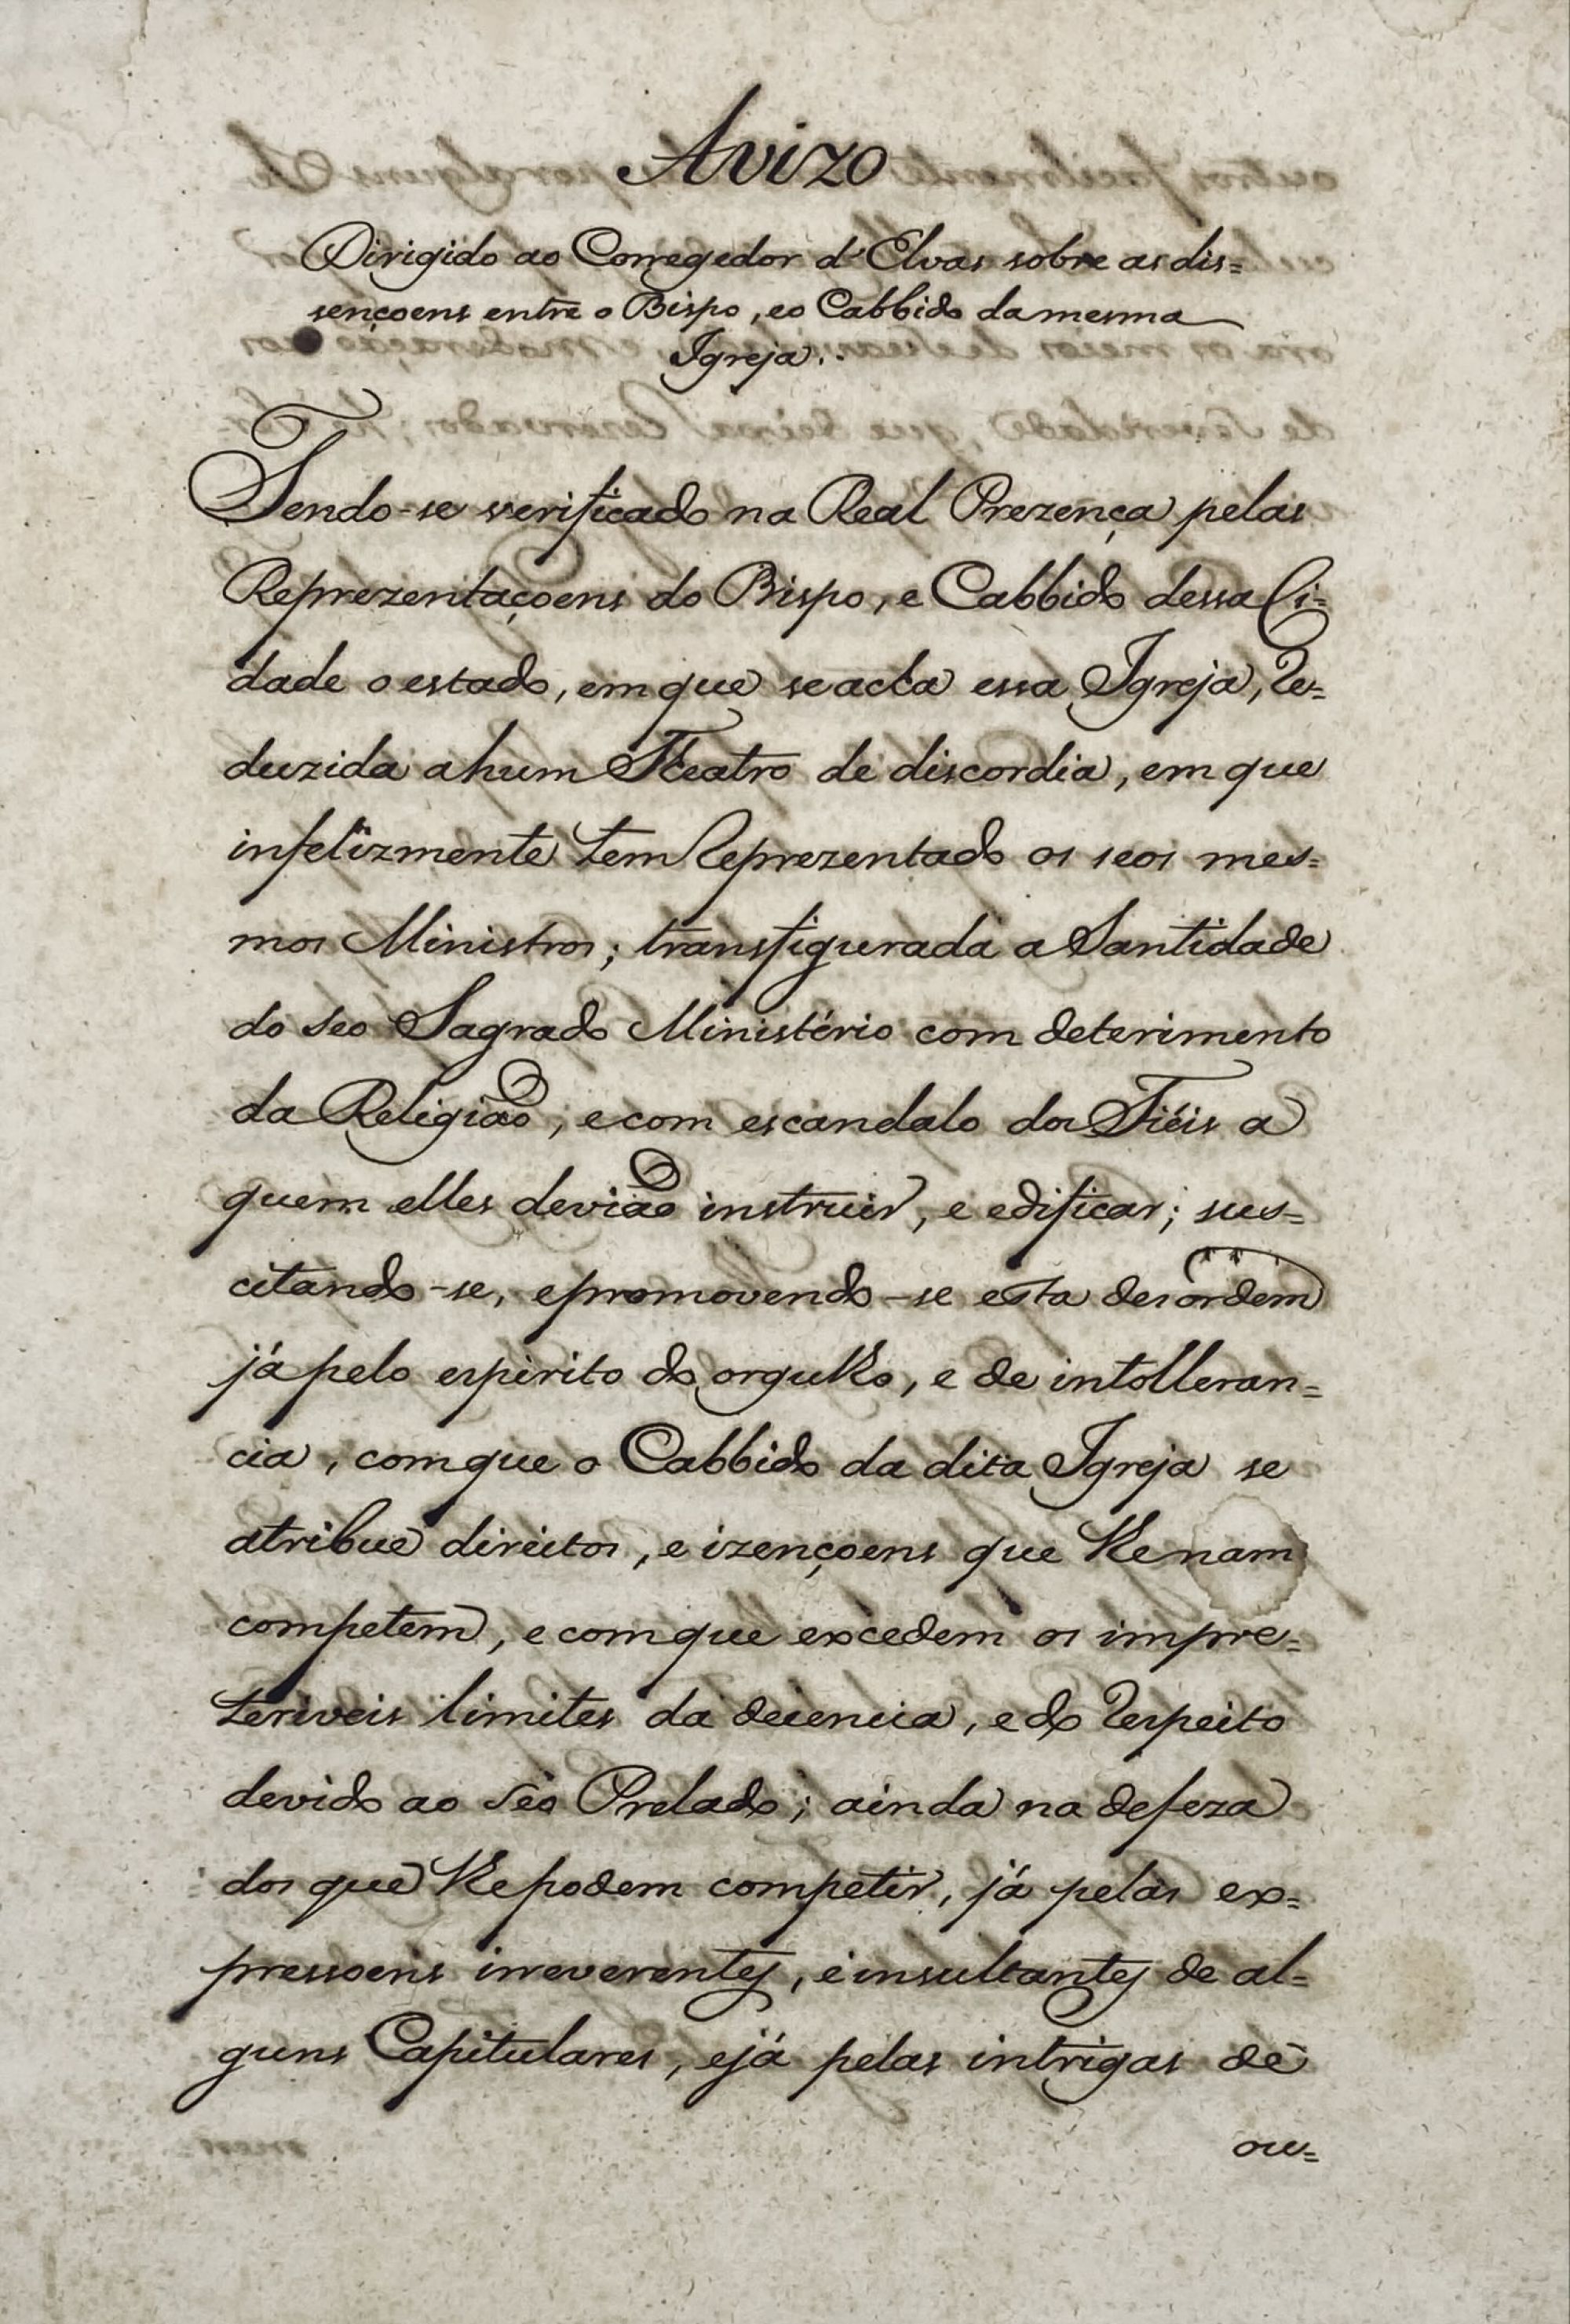 Avizo
Dirigido ao Corregedor d'Elvas sobre as dis=
sençoens entre o Bispo, e o Cabbido da mesma
Igreja.
Tendo-se verificado na Real Prezença pelas
Reprezentaçoens do Bispo, e Cabbido dessa Ci=
dade o estado, em que se acha essa Igreja, Re=
duzida a hum Theatro de discordia, em que
infelizmente tem Reprezentado os seos mes=
mos Ministros; transfigurada a Santidade
do seo Sagrado Ministério com deterimento
da Religião, e com escandalo dos Fiéis a
quem elles devião instruir, e edificar; sus=
citando-se, e promovendo-se esta desordem
já pelo espirito do orgulho, e de intolleran=
cia, com que o Cabbido da dita Igreja se
atribue direitos, e izençoens que lhe nam
competem, e com que excedem os impre=
teriveis limites da decencia, e do Respeito
devido ao séo Prelado; ainda na defeza
dos que lhe podem competir, já pelas ex=
pressoens irreverentes, e insultantes de al=
guns Capitulares, e já pelas intrigas de
ou=